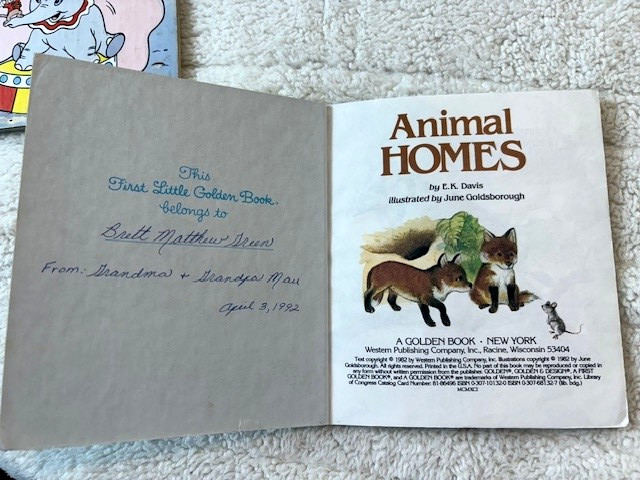 This
First Little Golden Book®
belongs to
Brett Matthew Green
From: Grandma + Grandpa Mau
April 3, 1992
Animal
HOMES
by E.K. Davis
illustrated by June Goldsborough
A GOLDEN BOOK · NEW YORK
Western Publishing Company, Inc., Racine, Wisconsin 53404
Text copyright © 1982 by Western Publishing Company, Inc. Illustrations copyright © 1982 by June
Goldsborough. All rights reserved. Printed in the U.S.A. No part of this book may be reproduced or copied in
any form without written permission from the publisher. GOLDEN®, GOLDEN & DESIGN®, A FIRST
GOLDEN BOOK®, and A GOLDEN BOOK® are trademarks of Western Publishing Company, Inc. Library
of Congress Catalog Card Number: 81-86496 ISBN 0-307-10132-0 ISBN 0-307-68132-7 (lib. bdg.)
MCMXCI